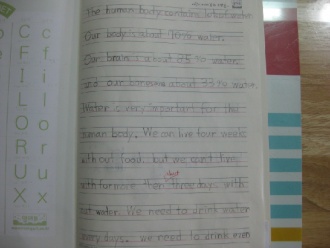 The human body contains lot of water.
Our body is about 70% water.
Our brain is about 85% water
and our bones are about 35% water.
Water is very important for the
human body. We can live four weeks
without food, but we can't live
with for more then three days with
out water. We need to drink water
every days. we need to drink even
C c
F f
I i
L l
O o
R r
U u
X x